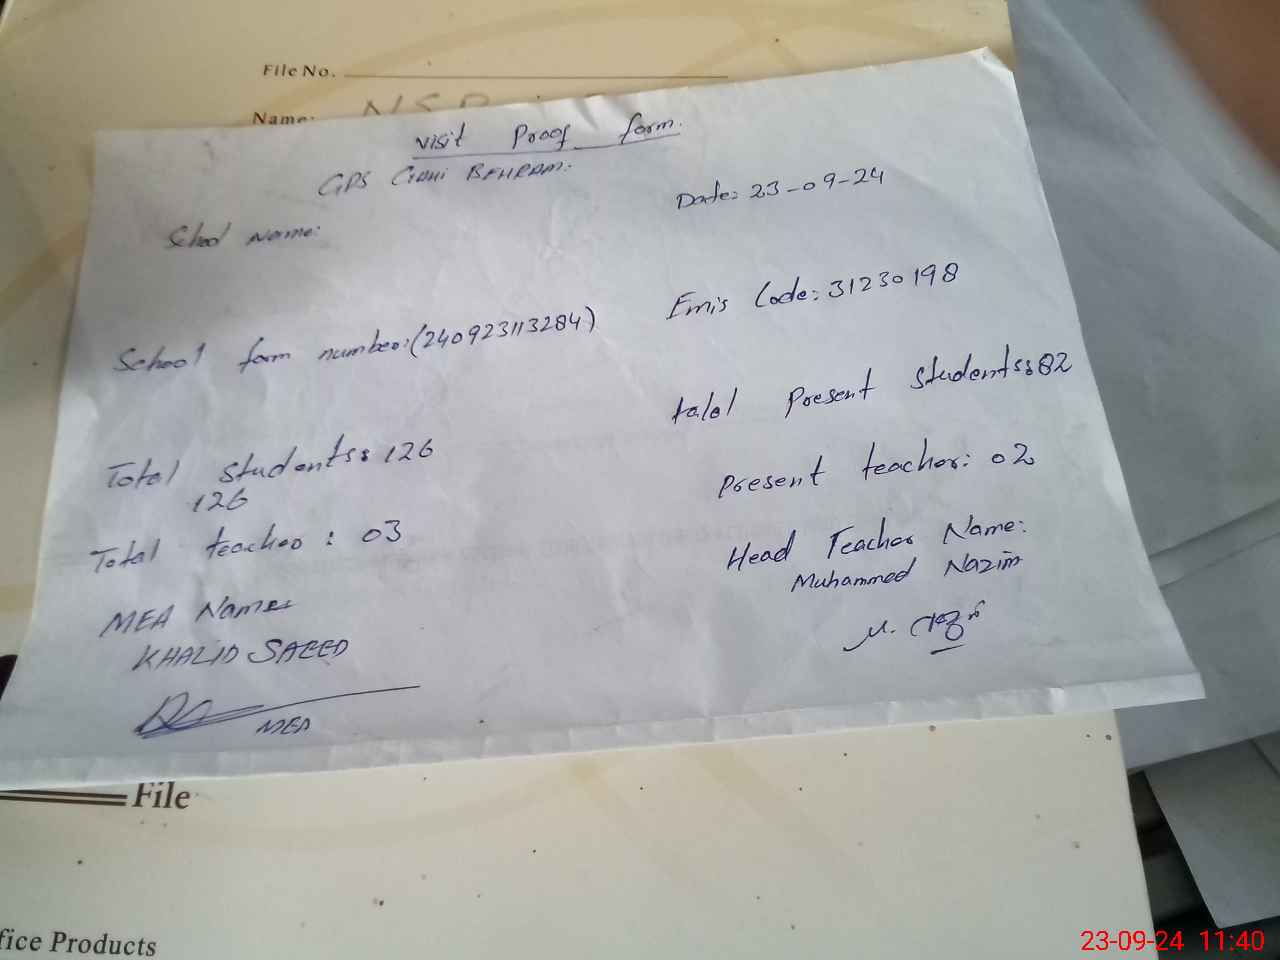 File No.
Name:
Visit Proof form.
GPS Garhi BEHRAM.
Date: 23-09-24
School Name:
Emis Code: 31230198
School form number:(240923113284)
total Present students: 82
Total students: 126
126
Present teacher: 02
Total teacher : 03
Head Teacher Name:
Muhammed Nazim
MEA Name:
KHALID SAEED
MEA
File
fice Products
23-09-24 11:40